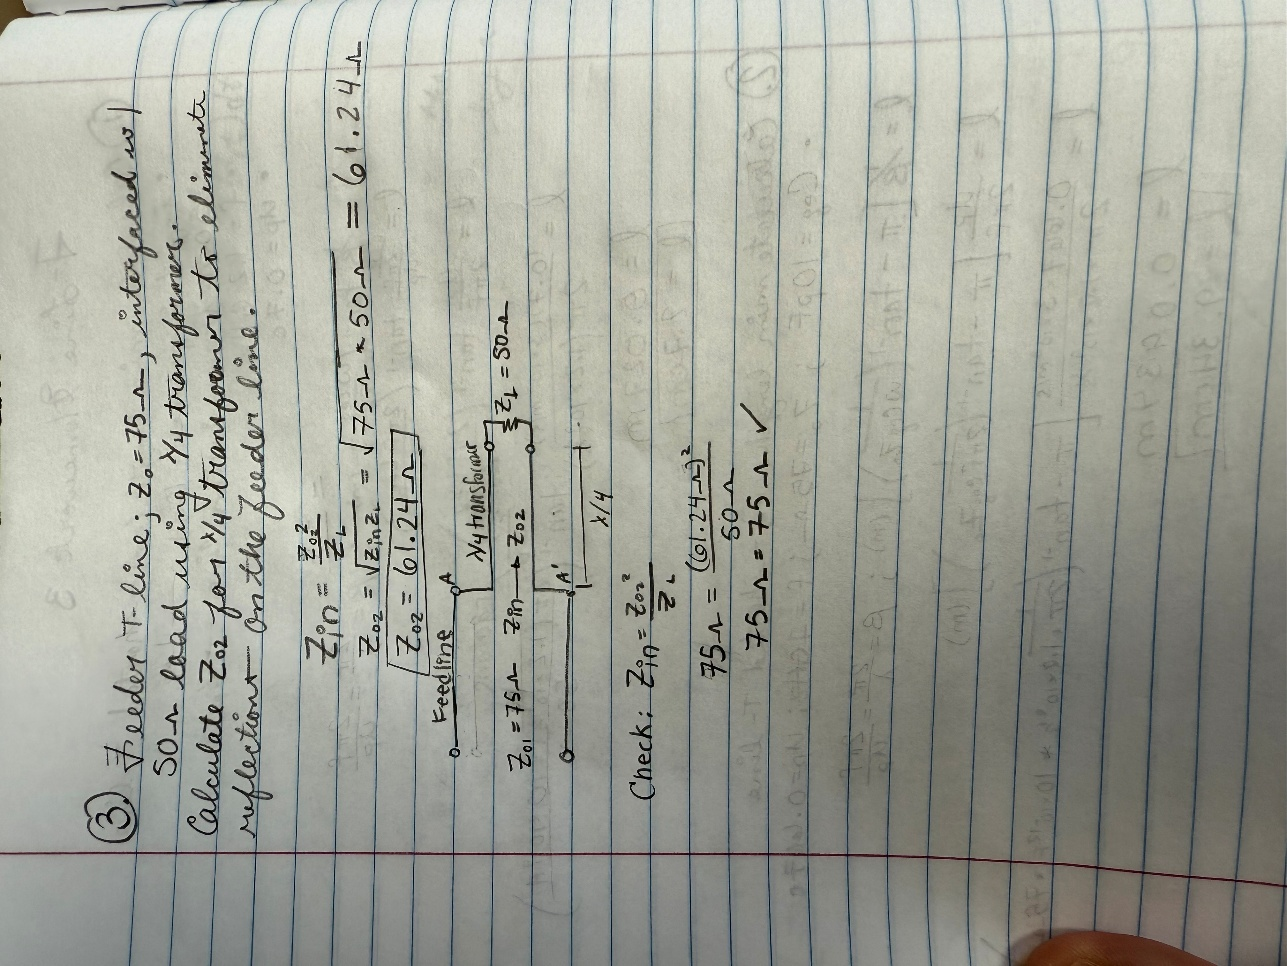 ③. Feeder T-line; Z₀=75Ω, interfaced w/
50Ω load using λ/4 transformer.
Calculate Z₀₂ for λ/4 transformer to eliminate
reflection on the feeder line.
Zin = Z₀₂²/Z_L
Z₀₂ = √(Zin Z_L) = √(75Ω * 50Ω) = 61.24Ω
Z₀₂ = 61.24Ω
Feedline A λ/4 transformer
Z₀₁ = 75Ω Zin → Z₀₂ Z_L = 50Ω
A'
λ/4
Check: Zin = Z₀₂²/Z_L
75Ω = (61.24Ω)²/50Ω
75Ω = 75Ω ✓